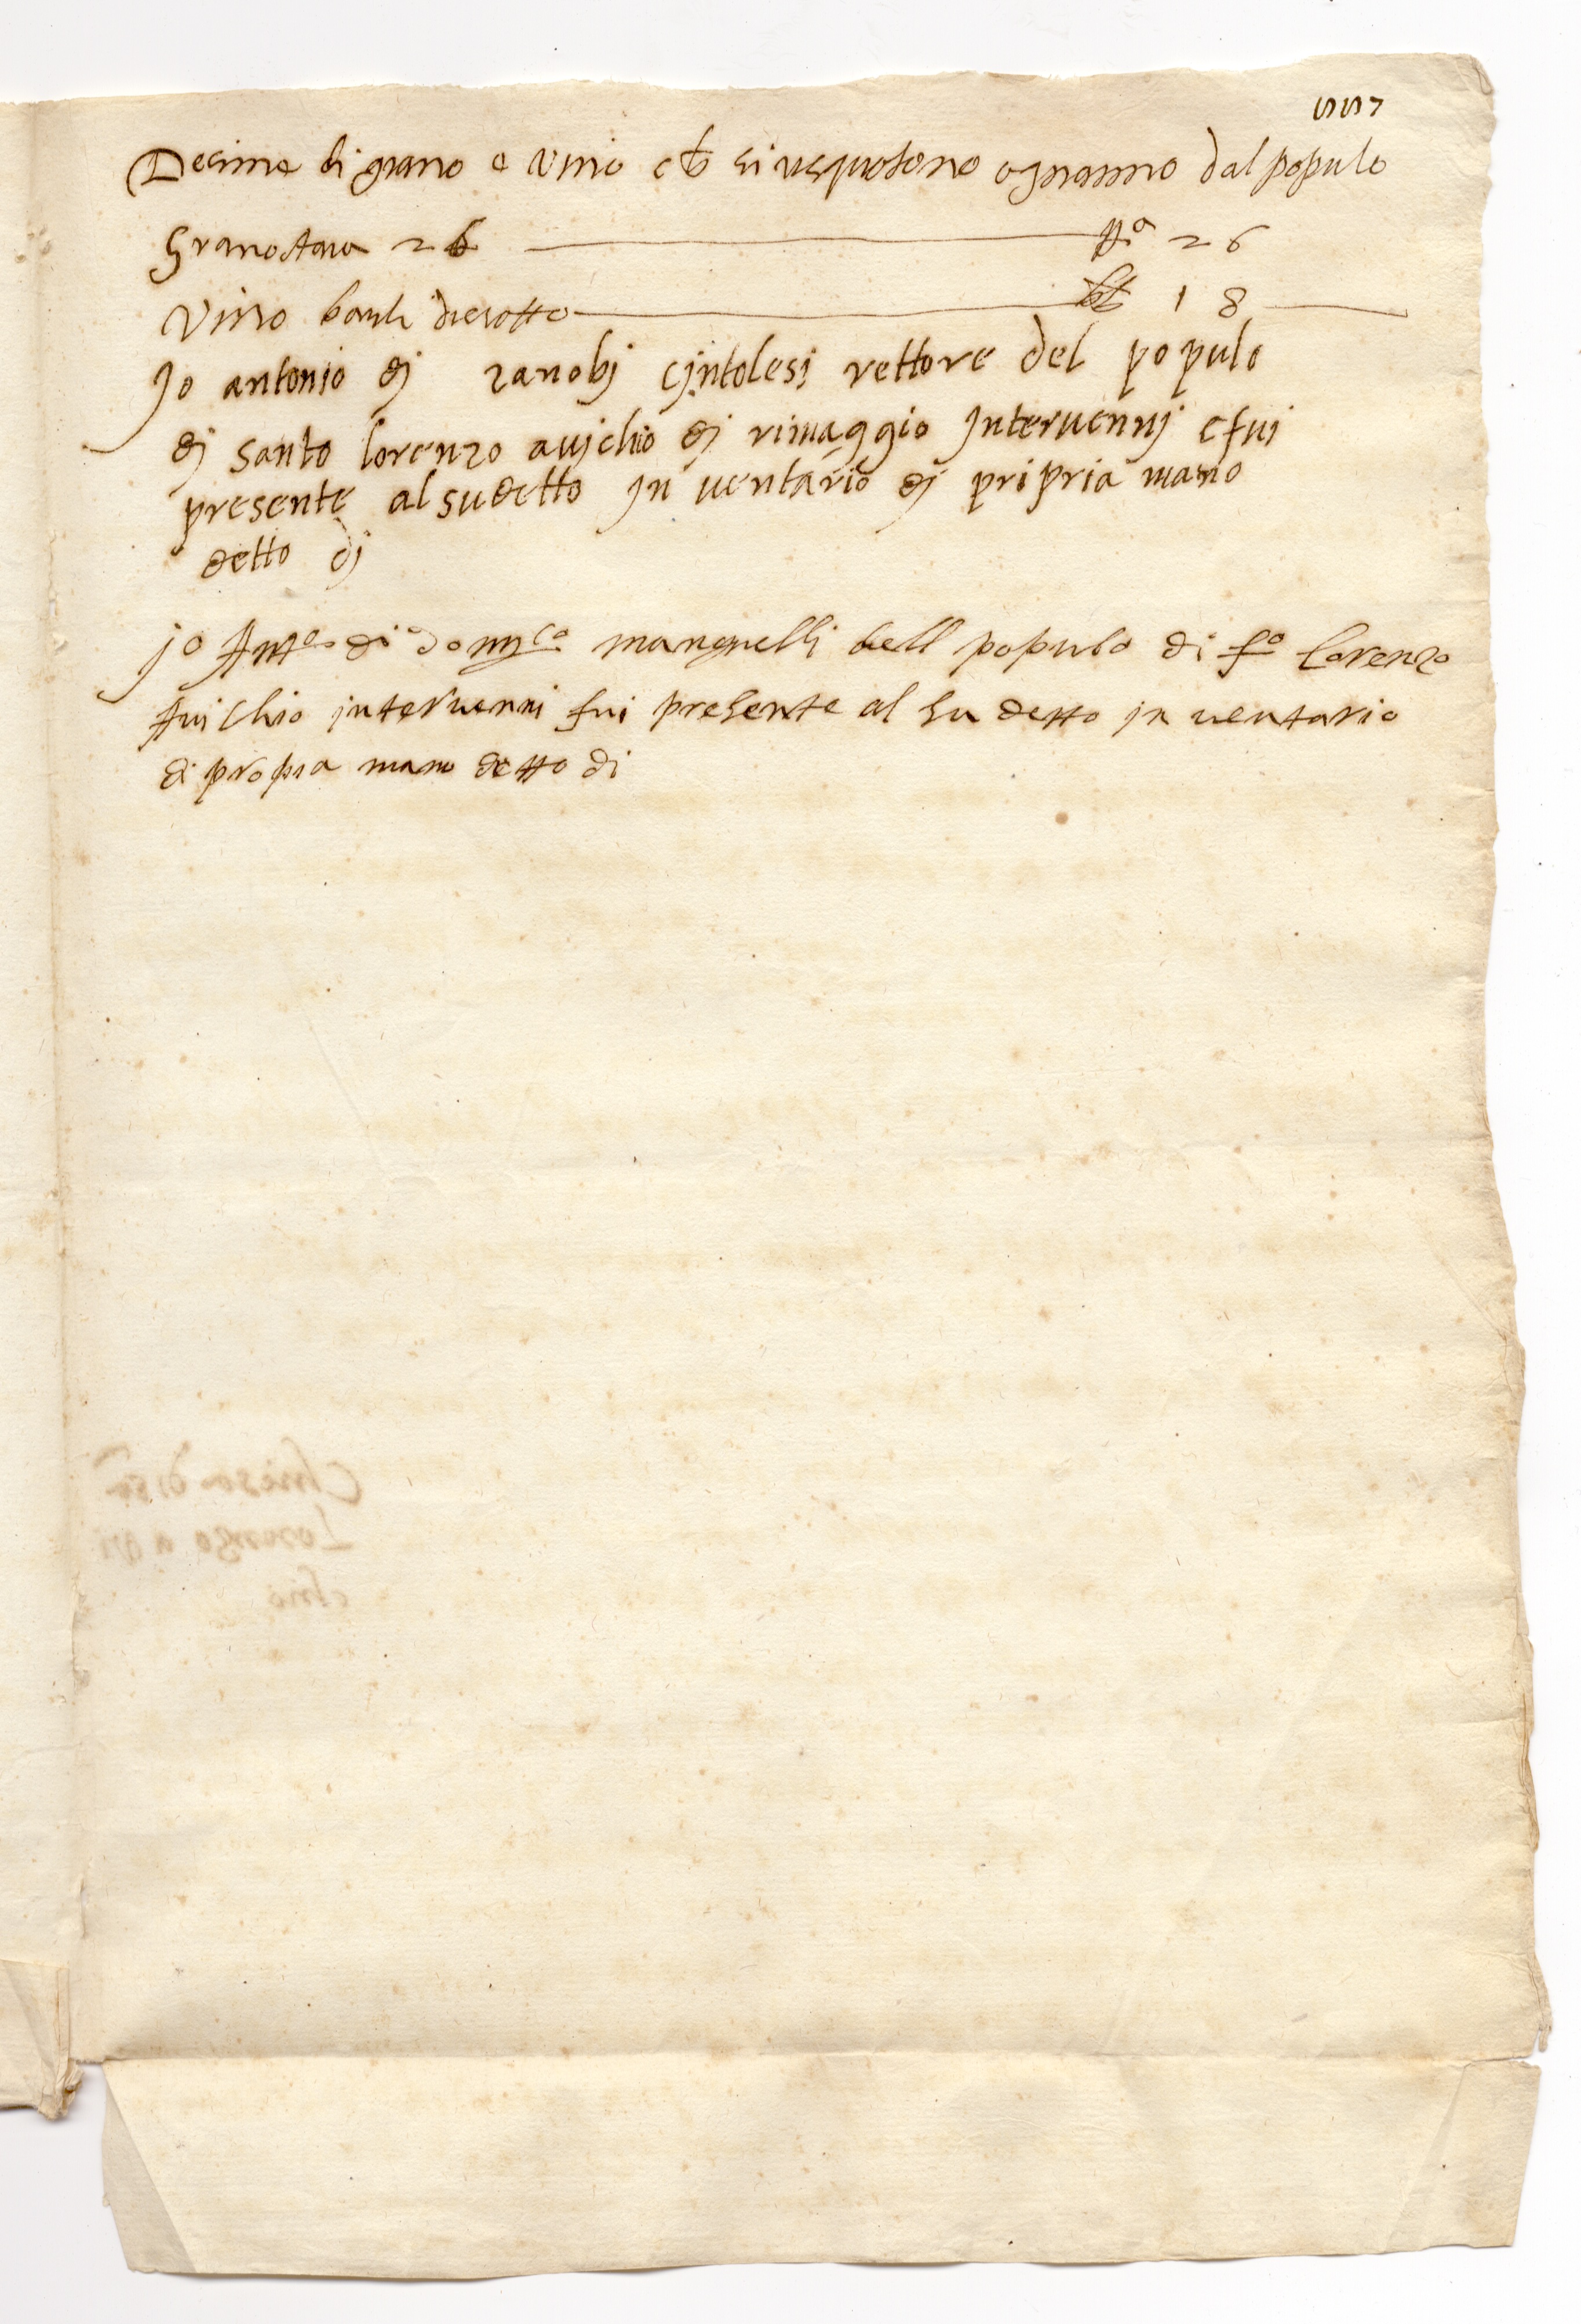 557
Decime di grano e vino ch si risquotono ogn anno dal popolo
Grano staia 26 Sta 26
Vino barili diciotto bt 18
Jo antonio dj zanobj cjntolesj rettore del populo
dj santo lorenzo avjchio dj rimaggio Intervennj e fui
presente al sudetto In ventario dj pripria mano
detto dj
jo Anto di Domco manguelli dell populo di So lorenzo
Avichio intervenni fui presente al su detto in ventario
di propia mano detto di
Chiesa di San
Lorenzo a Vi
chio